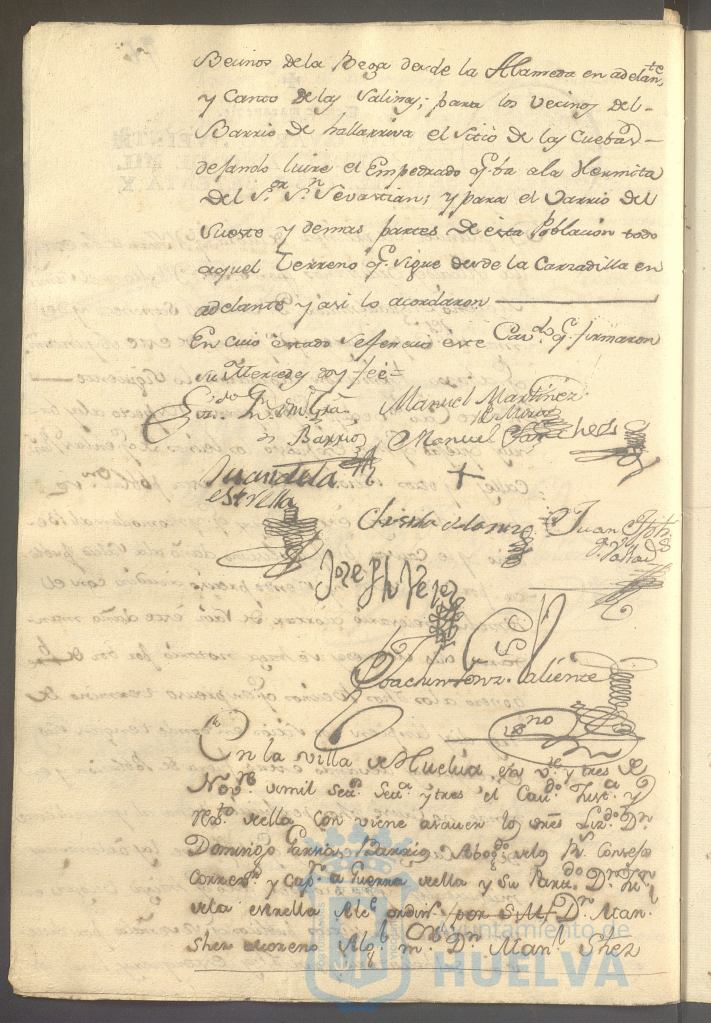 Becinos de la Bega desde la Alameda en adelante
y Canto de las Salinas; para los vecinos del
Barrio de hallarriva el sitio de las Cuebas
dejando luire el Empedrado q.e ba a la Hermita
del S.or S.n Sevastian; y para el Varrio del
Sueste y demas partes de esta Poblacion todo
aquel Terreno q.e sigue desde la Carzadilla en
adelante y asi lo acordaron
En cuio estado se feneció este Cav.do q.e firmaron
su Mercedes doy fee=
Manuel Martinez
Barrio Manuel Sanchez
Juan de la
estrella
Juan
Joseph Perez
Joachin Valiente
En la villa de Huelva en v.te y tres de
Nov.re de mil Set.s Set.a y tres el Cav.do Just.a y
de ella, con viene a saver los
Domingo Garcia Barrio, Abog.do de los R.s Consejos
Correx.or y Cap.n a Guerra de ella y su Part.do D.n
de la estrella Alc.e ordin.o por S.M. D.n Man.
Shez Moreno Alg.l m.or D.n Man.l Shez
Ayuntamiento de
HUELVA